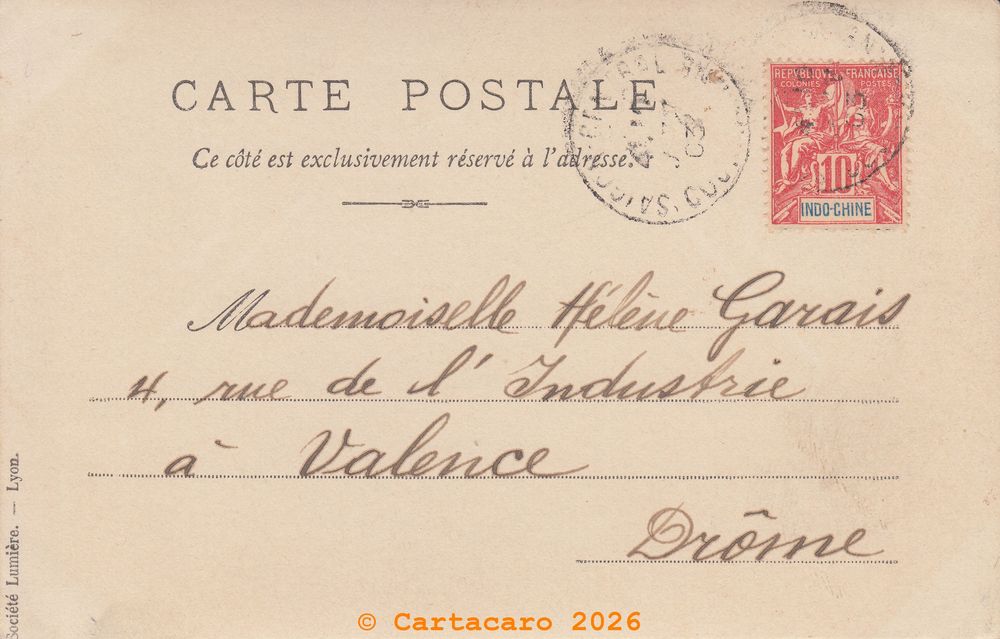 CARTE POSTALE
Ce côté est exclusivement réservé à l'adresse.
REPUBLIQUE FRANÇAISE
COLONIES POSTES
10
INDO-CHINE
Mademoiselle Hélène Garais
4, rue de l'Industrie
à Valence
Drôme
Société Lumière. — Lyon.
© Cartacaro 2026